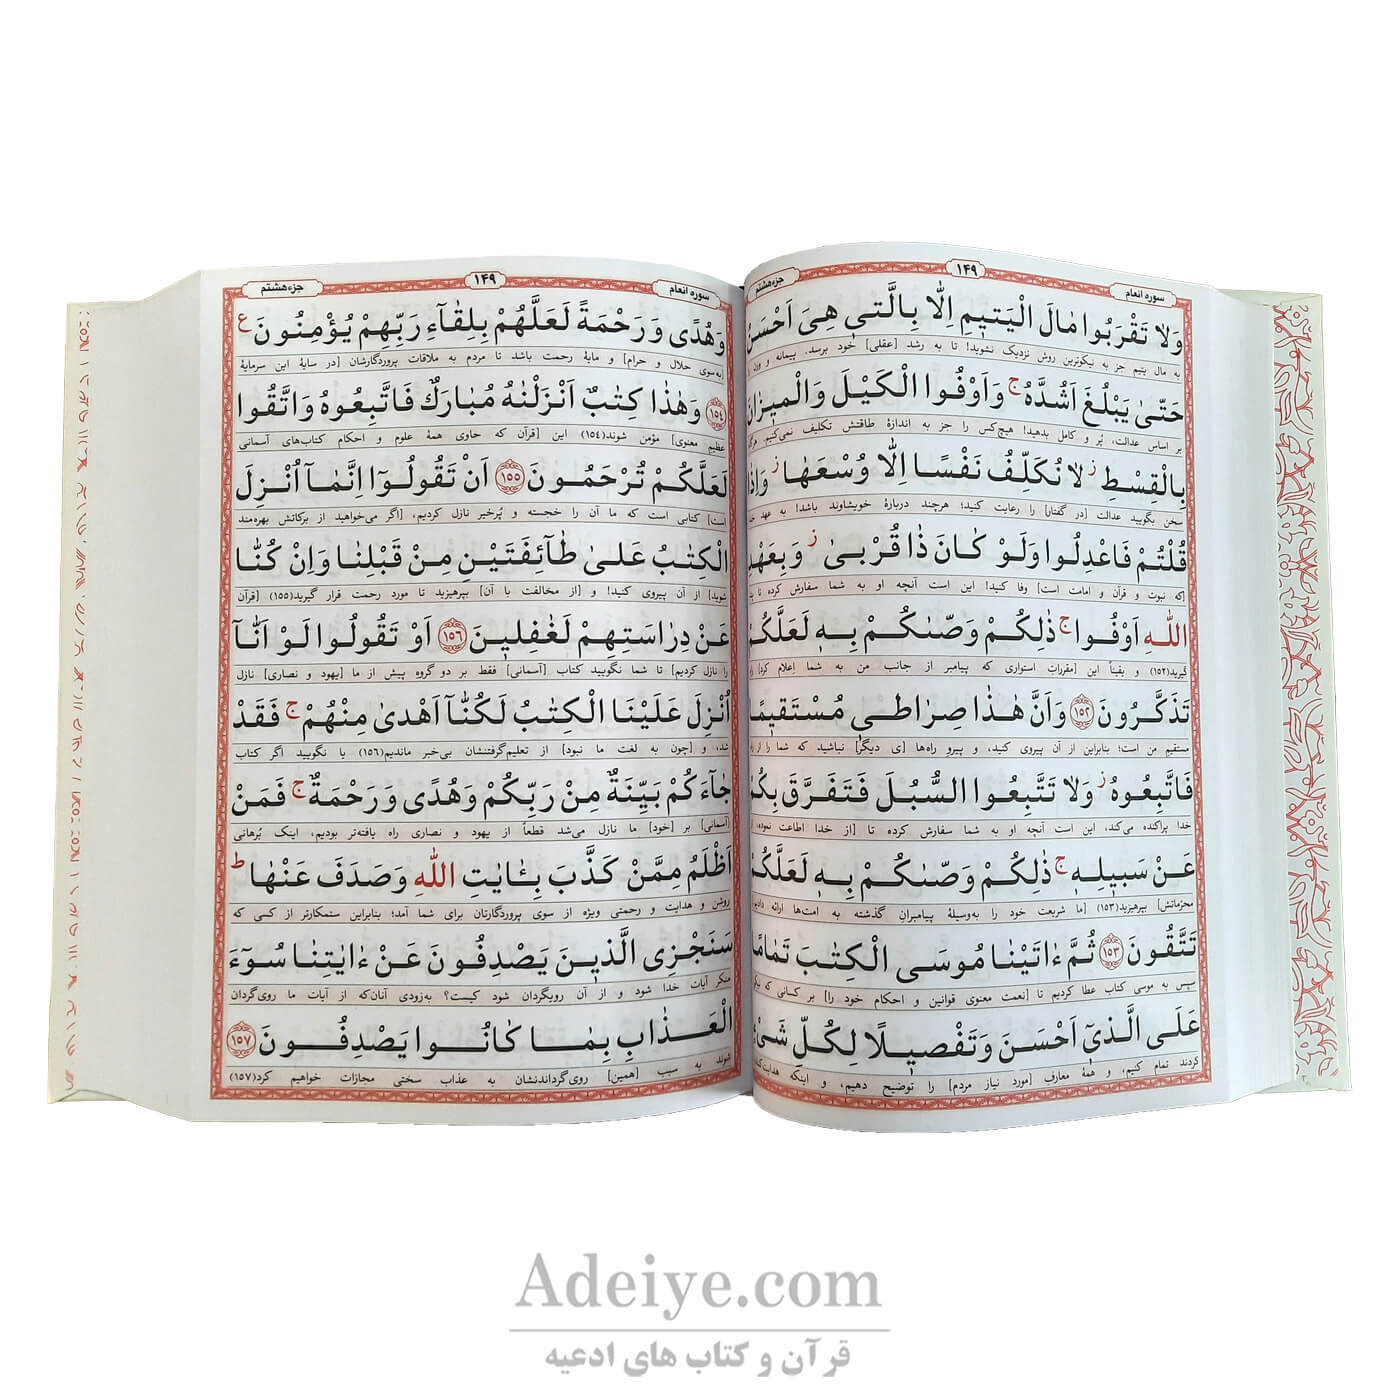 سوره انعام
۱۴۹
جزء هشتم
وَلا تَقْرَبُوا مٰالَ الْیَتیمِ اِلّا بِالَّتی هِیَ اَحْسَنُ
به مال یتیم جز به نیکوترین روش نزدیک نشوید! تا به رشد [عقلی] خود برسد. پیمانه و وزن
حَتّیٰ یَبْلُغَ اَشُدَّهُ ج وَاَوْفُوا الْکَیْلَ وَالْمیزٰانَ
بر اساس عدالت، پُر و کامل بدهید! هیچ‌کس را جز به اندازهٔ طاقتش تکلیف نمی‌کنیم.
بِالْقِسْطِ ز لا نُکَلِّفُ نَفْسًا اِلّا وُسْعَهٰا ز وَاِذٰا
سخن بگویید عدالت [در گفتار] را رعایت کنید؛ هرچند دربارهٔ خویشاوند باشد! به عهد
قُلْتُمْ فَاعْدِلُوا وَلَوْ کٰانَ ذٰا قُرْبیٰ ز وَبِعَهْدِ
[که نبوت و قرآن و امامت است] وفا کنید! این است آنچه او به شما سفارش کرده تا
اللّٰهِ اَوْفُوا ج ذٰلِکُمْ وَصّٰىکُمْ بِهٖ لَعَلَّکُمْ
گیرید(۱۵۲) و یقیناً این [مقررات استواری که پیامبر از جانب من به شما اِعلام کرد]
تَذَکَّرُونَ ۱۵۲ وَاَنَّ هٰذٰا صِرٰاطی مُسْتَقیمًا
مستقیم من است؛ بنابراین از آن پیروی کنید، و پیرو راه‌ها [ی دیگر] نباشید که شما را از
فَاتَّبِعُوهُ ز وَلا تَتَّبِعُوا السُّبُلَ فَتَفَرَّقَ بِکُمْ
خدا پراکنده می‌کند، این است آنچه او به شما سفارش کرده تا [از خدا اطاعت نموده،
عَنْ سَبیلِهٖ ج ذٰلِکُمْ وَصّٰىکُمْ بِهٖ لَعَلَّکُمْ
محرّماتش] بپرهیزید(۱۵۳) [ما شریعت خود را به‌وسیلهٔ پیامبرانِ گذشته به امت‌ها ارائه دادیم]
تَتَّقُونَ ۱۵۳ ثُمَّ ءٰاتَیْنٰا مُوسَی الْکِتٰبَ تَمٰامًا
سپس به موسی کتاب عطا کردیم تا [نعمت معنوی قوانین و احکام خود را] بر کسانی که
عَلَی الَّذیٓ اَحْسَنَ وَتَفْصیلًا لِکُلِّ شَیْءٍ
کردند تمام کنیم، و همهٔ معارفِ [مورد نیاز مردم] را توضیح دهیم، و اینکه
سوره انعام
۱۴۹
جزء هشتم
وَهُدًی وَرَحْمَةً لَعَلَّهُمْ بِلِقٰآءِ رَبِّهِمْ یُؤْمِنُونَ ع
[به‌سوی حلال و حرام] و مایهٔ رحمت باشد تا مردم به ملاقات پروردگارشان [در سایهٔ این سرمایهٔ
۱۵۴ وَهٰذٰا کِتٰبٌ اَنْزَلْنٰهُ مُبٰارَکٌ فَاتَّبِعُوهُ وَاتَّقُوا
عظیم معنوی] مؤمن شوند(۱۵۴) این [قرآن که حاوی همهٔ علوم و احکام کتاب‌های آسمانی
لَعَلَّکُمْ تُرْحَمُونَ ۱۵۵ اَنْ تَقُولُوٓا اِنَّمٰآ اُنْزِلَ
است] کتابی است که ما آن را خجسته و پُرخیر نازل کردیم، [اگر می‌خواهید از برکاتش بهره‌مند
الْکِتٰبُ عَلیٰ طٰآئِفَتَیْنِ مِنْ قَبْلِنٰا وَاِنْ کُنّٰا
شوید] از آن پیروی کنید! و [از مخالفت با آن] بپرهیزید تا مورد رحمت قرار گیرید(۱۵۵) [قرآن
عَنْ دِرٰاسَتِهِمْ لَغٰفِلینَ ۱۵۶ اَوْ تَقُولُوا لَوْ اَنّٰآ
را نازل کردیم] تا شما نگویید کتاب [آسمانی] فقط بر دو گروه پیش از ما [یهود و نصاری] نازل
اُنْزِلَ عَلَیْنَا الْکِتٰبُ لَکُنّٰآ اَهْدیٰ مِنْهُمْ ج فَقَدْ
شد، و [چون به لغت ما نبود] از تعلیم‌گرفتنشان بی‌خبر ماندیم(۱۵۶) یا نگویید اگر کتاب
جٰآءَکُمْ بَیِّنَةٌ مِنْ رَبِّکُمْ وَهُدًی وَرَحْمَةٌ ج فَمَنْ
[آسمانی] بر [خود] ما نازل می‌شد قطعاً از یهود و نصاری راه یافته‌تر بودیم، اینک بُرهانی
اَظْلَمُ مِمَّنْ کَذَّبَ بِـٰٔایٰتِ اللّٰهِ وَصَدَفَ عَنْهٰا ط
روشن و هدایت و رحمتی ویژه از سوی پروردگارتان برای شما آمد؛ بنابراین ستمکارتر از کسی که
سَنَجْزِی الَّذینَ یَصْدِفُونَ عَنْ ءٰایٰتِنٰا سُوٓءَ
منکر آیات خدا شود و از آن رویگردان شود کیست؟ به‌زودی آنان‌که از آیات ما روی‌گردان
الْعَذٰابِ بِمٰا کٰانُوا یَصْدِفُونَ ۱۵۷
شوند به سبب [همین] روی‌گرداندنشان به عذاب سختی مجازات خواهیم کرد(۱۵۷)
Adeiye.com
قرآن و کتاب های ادعیه